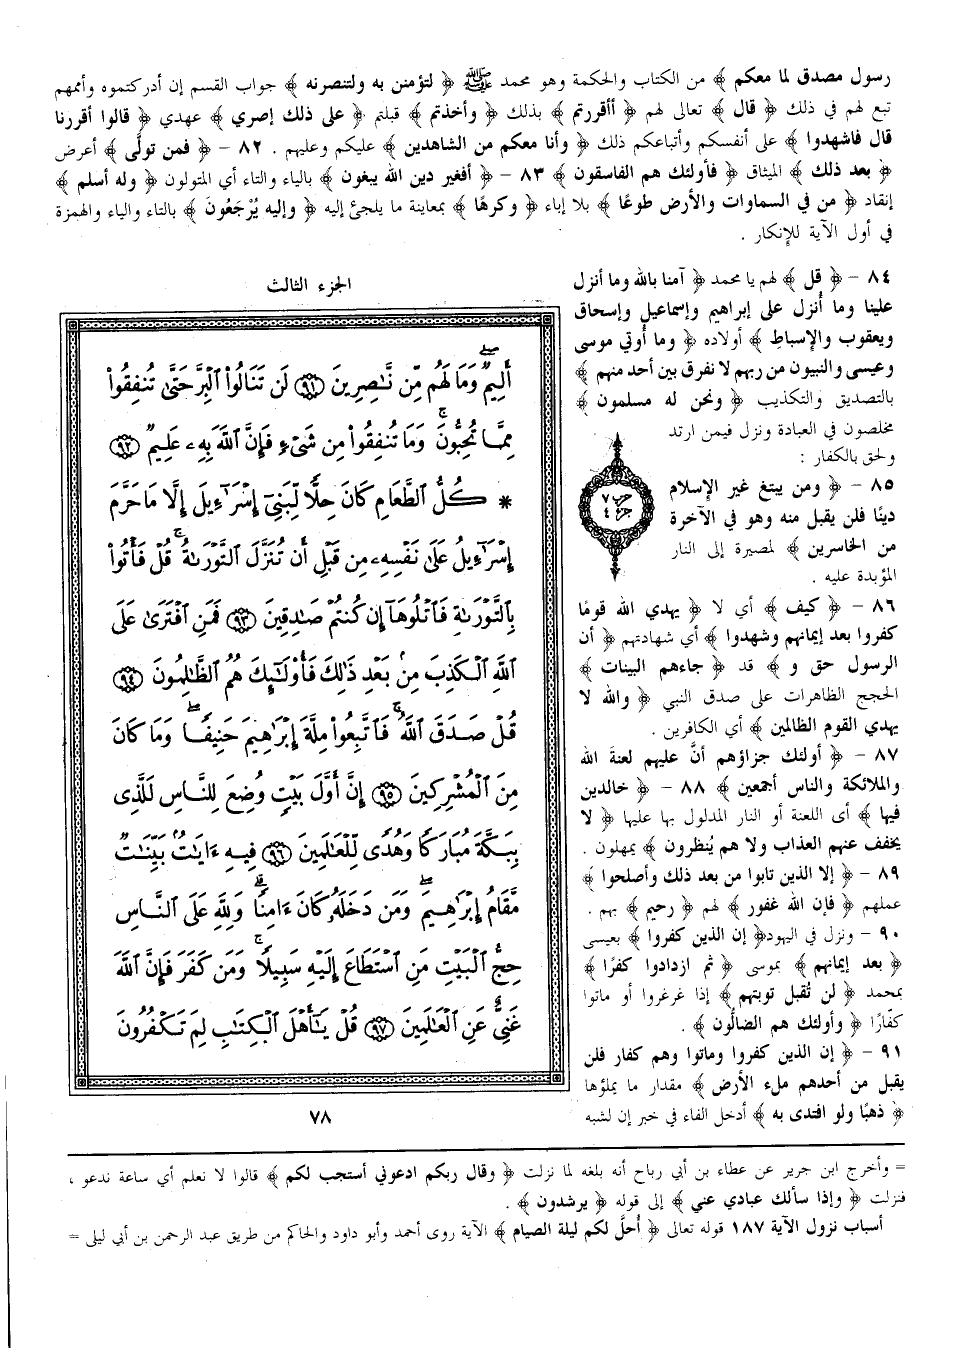 رسول مصدق لما معكم ﴾ من الكتاب والحكمة وهو محمد ﷺ ﴿ لتؤمنن به ولتنصرنه ﴾ جواب القسم إن أدركتموه وأممهم
تبع لهم في ذلك ﴿ قال ﴾ تعالى لهم ﴿ أأقررتم ﴾ بذلك ﴿ وأخذتم ﴾ قبلتم ﴿ على ذلك إصري ﴾ عهدي ﴿ قالوا أقررنا
قال فاشهدوا ﴾ على أنفسكم وأتباعكم ذلك ﴿ وأنا معكم من الشاهدين ﴾ عليكم وعليهم . ٨٢ – ﴿ فمن تولَّى ﴾ أعرض
﴿ بعد ذلك ﴾ الميثاق ﴿ فأولئك هم الفاسقون ﴾ ٨٣ – ﴿ أفغير دين الله يبغون ﴾ بالياء والتاء أي المتولون ﴿ وله أسلم ﴾
إنقاد ﴿ من في السماوات والأرض طوعًا ﴾ بلا إباء ﴿ وكرهًا ﴾ بمعاينة ما يلجئ إليه ﴿ وإليه يُرْجَعُونَ ﴾ بالتاء والياء والهمزة
في أول الآية للإنكار .
٨٤ – ﴿ قل ﴾ لهم يا محمد ﴿ آمنا بالله وما أنزل
علينا وما أُنزل على إبراهيم وإسماعيل وإسحاق
ويعقوب والإسباط ﴾ أولاده ﴿ وما أُوتي موسى
وعيسى والنبيون من ربهم لا نفرق بين أحد منهم ﴾
بالتصديق والتكذيب ﴿ ونحن له مسلمون ﴾
مخلصون في العبادة ونزل فيمن ارتد
ولحق بالكفار :
٨٥ – ﴿ ومن يبتغ غير الإسلام
دينًا فلن يقبل منه وهو في الآخرة
من الخاسرين ﴾ لمصيرة إلى النار
المؤبدة عليه .
٨٦ – ﴿ كيف ﴾ أي لا ﴿ يهدي الله قومًا
كفروا بعد إيمانهم وشهدوا ﴾ أي شهادتهم ﴿ أن
الرسول حق و ﴾ قد ﴿ جاءهم البينات ﴾
الحجج الظاهرات على صدق النبي ﴿ والله لا
يهدي القوم الظالمين ﴾ أي الكافرين .
٨٧ – ﴿ أولئك جزاؤهم أنَّ عليهم لعنةَ الله
والملائكة والناس أجمعين ﴾ ٨٨ – ﴿ خالدين
فيها ﴾ أى اللعنة أو النار المدلول بها عليها ﴿ لا
يخفف عنهم العذاب ولا هم يُنظرون ﴾ يمهلون .
٨٩ – ﴿ إلا الذين تابوا من بعد ذلك وأصلحوا ﴾
عملهم ﴿ فإن الله غفور ﴾ لهم ﴿ رحيم ﴾ بهم .
٩٠ – ونزل في اليهود﴿ إن الذين كفروا ﴾ بعيسى
﴿ بعد إيمانهم ﴾ بموسى ﴿ ثم ازدادوا كفرًا ﴾
بمحمد ﴿ لن تُقبل توبتهم ﴾ إذا غرغروا أو ماتوا
كفّارًا ﴿ وأولئك هم الضالُّون ﴾ .
٩١ – ﴿ إن الذين كفروا وماتوا وهم كفار فلن
يقبل من أحدهم ملء الأرض ﴾ مقدار ما يملؤها
﴿ ذهبًا ولو افتدى به ﴾ أدخل الفاء في خبر إن لشبه
حزب ٧
جزء ٤
الجزء الثالث
أَلِيمٌ وَمَا لَهُم مِّن نَّٰصِرِينَ ٩١ لَن تَنَالُوا۟ ٱلْبِرَّ حَتَّىٰ تُنفِقُوا۟
مِمَّا تُحِبُّونَ ۚ وَمَا تُنفِقُوا۟ مِن شَىْءٍ فَإِنَّ ٱللَّهَ بِهِۦ عَلِيمٌ ٩٢
* كُلُّ ٱلطَّعَامِ كَانَ حِلًّا لِّبَنِىٓ إِسْرَٰٓءِيلَ إِلَّا مَا حَرَّمَ
إِسْرَٰٓءِيلُ عَلَىٰ نَفْسِهِۦ مِن قَبْلِ أَن تُنَزَّلَ ٱلتَّوْرَىٰةُ ۗ قُلْ فَأْتُوا۟
بِٱلتَّوْرَىٰةِ فَٱتْلُوهَآ إِن كُنتُمْ صَٰدِقِينَ ٩٣ فَمَنِ ٱفْتَرَىٰ عَلَى
ٱللَّهِ ٱلْكَذِبَ مِنۢ بَعْدِ ذَٰلِكَ فَأُو۟لَٰٓئِكَ هُمُ ٱلظَّٰلِمُونَ ٩٤
قُلْ صَدَقَ ٱللَّهُ ۗ فَٱتَّبِعُوا۟ مِلَّةَ إِبْرَٰهِيمَ حَنِيفًا ۖ وَمَا كَانَ
مِنَ ٱلْمُشْرِكِينَ ٩٥ إِنَّ أَوَّلَ بَيْتٍ وُضِعَ لِلنَّاسِ لَلَّذِى
بِبَكَّةَ مُبَارَكًا وَهُدًى لِّلْعَٰلَمِينَ ٩٦ فِيهِ ءَايَٰتٌۢ بَيِّنَٰتٌ
مَّقَامُ إِبْرَٰهِيمَ ۖ وَمَن دَخَلَهُۥ كَانَ ءَامِنًا ۗ وَلِلَّهِ عَلَى ٱلنَّاسِ
حِجُّ ٱلْبَيْتِ مَنِ ٱسْتَطَاعَ إِلَيْهِ سَبِيلًا ۚ وَمَن كَفَرَ فَإِنَّ ٱللَّهَ
غَنِىٌّ عَنِ ٱلْعَٰلَمِينَ ٩٧ قُلْ يَٰٓأَهْلَ ٱلْكِتَٰبِ لِمَ تَكْفُرُونَ
٧٨
= وأخرج ابن جرير عن عطاء بن أبي رباح أنه بلغه لما نزلت ﴿ وقال ربكم ادعوني أستجب لكم ﴾ قالوا لا نعلم أي ساعة ندعو ،
فنزلت ﴿ وإذا سألك عبادي عني ﴾ إلى قوله ﴿ يرشدون ﴾ .
أسباب نزول الآية ١٨٧ قوله تعالى ﴿ أُحلَّ لكم ليلة الصيام ﴾ الآية روى أحمد وأبو داود والحاكم من طريق عبد الرحمن بن أبي ليلى =